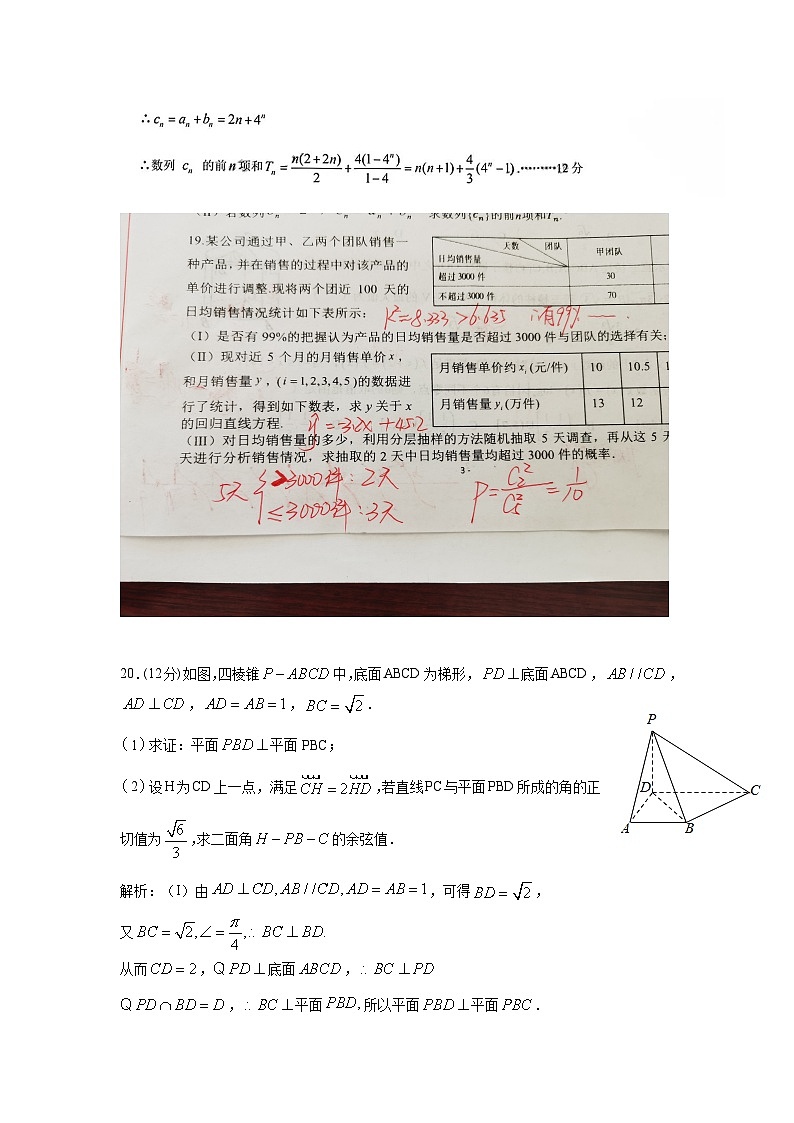 ∴ cₙ = aₙ + bₙ = 2n + 4ⁿ
∴数列 cₙ 的前n项和Tₙ = n(2+2n)/2 + 4(1−4ⁿ)/(1−4) = n(n+1) + 4/3(4ⁿ −1).⋯⋯⋯12 分
求数列{cₙ}的前n项和Tₙ.
19.某公司通过甲、乙两个团队销售一
种产品,并在销售的过程中对该产品的
单价进行调整.现将两个团近 100 天的
日均销售情况统计如下表所示:
天数 团队 甲团队
日均销售量
超过3000 件 30
不超过3000 件 70
K²=8.333 >6.635 有99%
(I) 是否有 99%的把握认为产品的日均销售量是否超过 3000 件与团队的选择有关;
(II) 现对近 5 个月的月销售单价 x,
和月销售量 y, (i = 1,2,3,4,5)的数据进
行了统计, 得到如下数表, 求 y 关于 x
的回归直线方程.
月销售单价约 xᵢ (元/件) 10 10.5 1
月销售量 yᵢ (万件) 13 12
ŷ=-3.2x+45.2
(III) 对日均销售量的多少, 利用分层抽样的方法随机抽取 5 天调查, 再从这 5 天
天进行分析销售情况, 求抽取的 2 天中日均销售量均超过 3000 件的概率.
5天 >3000件: 2天
≤3000件: 3天
P=C₂²/C₅²=1/10
20.(12分)如图,四棱锥P−ABCD中,底面ABCD为梯形, PD⊥底面ABCD, AB//CD,
AD⊥CD, AD=AB=1, BC=√2.
(1)求证: 平面PBD⊥平面PBC;
(2)设H为CD上一点, 满足CH=2HD,若直线PC与平面PBD所成的角的正
切值为√6/3,求二面角H−PB−C的余弦值.
P
D
C
A
B
解析: (I) 由AD⊥CD,AB//CD,AD=AB=1, 可得BD=√2,
又BC=√2,∠=π/4,∴BC⊥BD.
从而CD=2, Q PD⊥底面ABCD, ∴BC⊥PD
Q PD∩BD=D, ∴BC⊥平面PBD, 所以平面PBD⊥平面PBC.